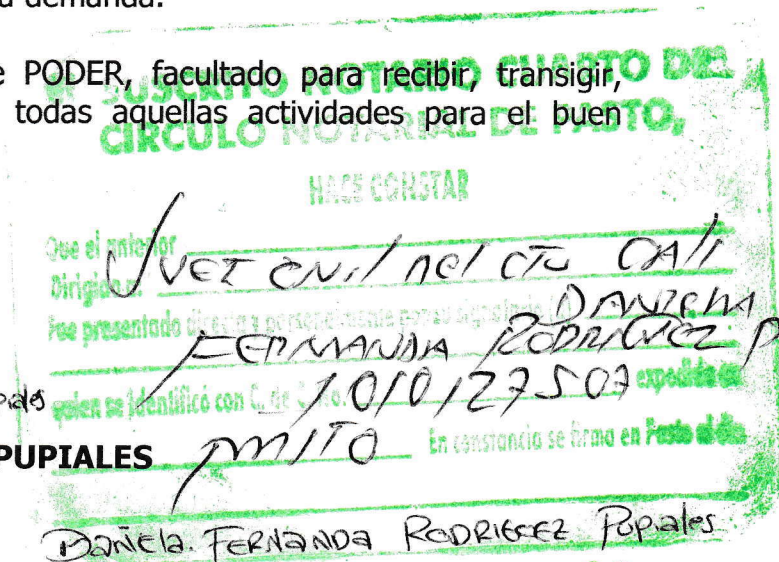 demanda.
PODER, facultado para recibir, transigir,
todas aquellas actividades para el buen
SUSCRITO NOTARIO CUARTO DEL
CIRCULO NOTARIAL DE PASTO,
HACE CONSTAR
Que el anterior
Juez Civil del Cto Cali
Dirigido a:
Fue presentado directa y personalmente por su signatario Daniela
Fernanda Rodriguez P
quien se identificó con C. de C. No. 1010127507 expedida en
PUPIALES
En constancia se firma en Pasto el día
Daniela. FERNANDA RODRIGUEZ Pupiales